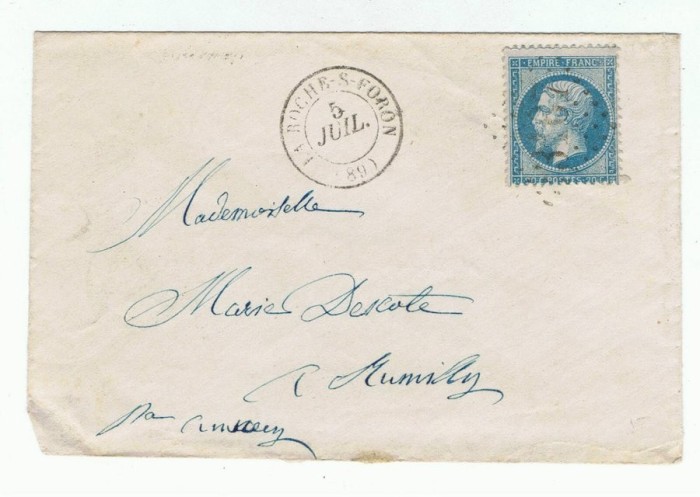 LA ROCHE-S-FORON
5
JUIL.
(89)
EMPIRE · FRANC
POSTES
Mademoiselle
Marie Descote
à Rumilly
par annecy